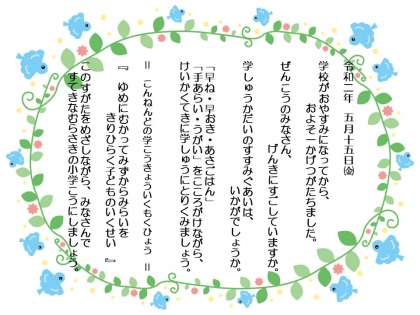 令和二年　五月十五日㈮
学校がおやすみになってから、
およそ二かげつがたちました。
ぜんこうのみなさん、
げんきにすごしていますか。
学しゅうかだいのすすみぐあいは、
いかがでしょうか。
「早ね・早おき・あさごはん」
「手あらい・うがい」をこころがけながら、
けいかくてきに学しゅうにとりくみましょう。
＝　こんねんどの学こうきょういくもくひょう　＝
『　ゆめにむかってみずからみらいを
きりひらく子どものいくせい　』
このすがたをめざしながら、みなさんで
すてきなむらさきの小学こうにしましょう。